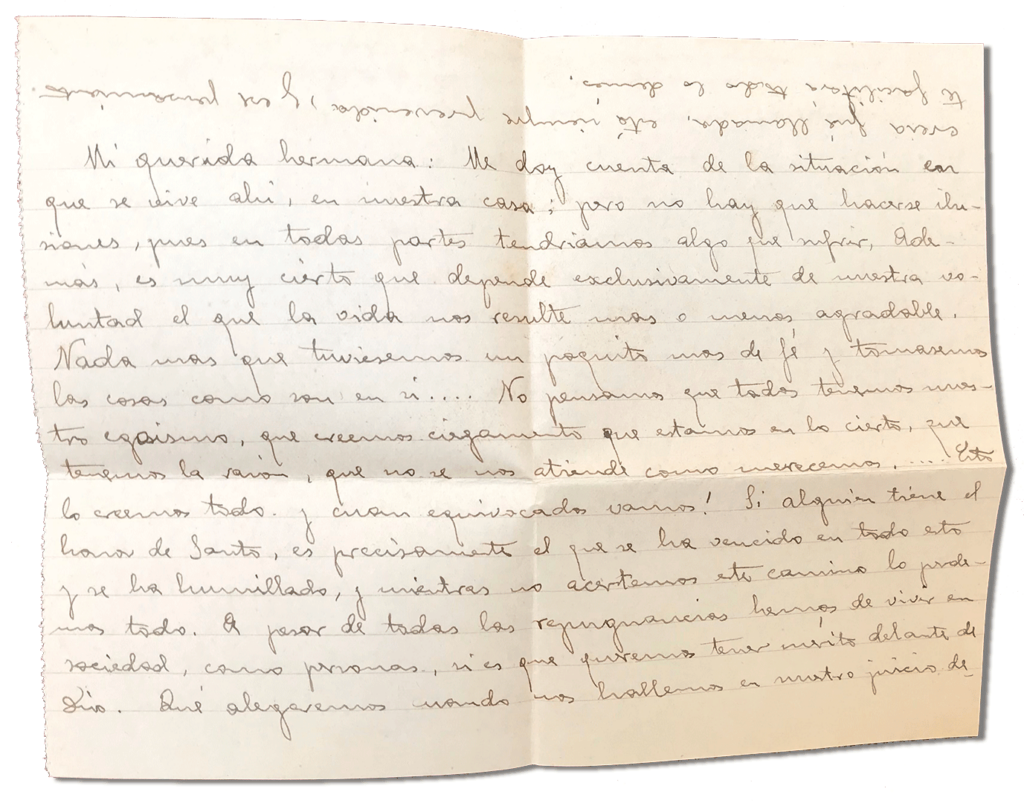 te facilitará todo lo demás.
creas fué llamada, está siempre prevenida, y es precisamente
Mi querida hermana: Me doy cuenta de la situación en
que se vive ahí, en nuestra casa; pero no hay que hacerse ilu-
siones, pues en todas partes tendríamos algo que sufrir, Ade-
más, es muy cierto que depende exclusivamente de nuestra vo-
luntad el que la vida nos resulte mas o menos agradable.
Nada mas que tuviesemos un poquito mas de fé y tomasemos
las cosas como son en si.... No pensamos que todos tenemos nues-
tro egoismo, que creemos ciegamente que estamos en lo cierto, que
tenemos la razón, que no se nos atiende como merecemos, .... Esto
lo creemos todo. y cuan equivocados vamos! Si alguien tiene el
honor de Santo, es precisamente el que se ha vencido en todo esto
y se ha humillado, y mientras no acertemos este camino lo perde-
mos todo. A pesar de todas las repugnancias hemos de vivir en
sociedad, como personas, si es que queremos tener mérito delante de
Dios. Qué alegaremos cuando nos hallemos en nuestro juicio de-